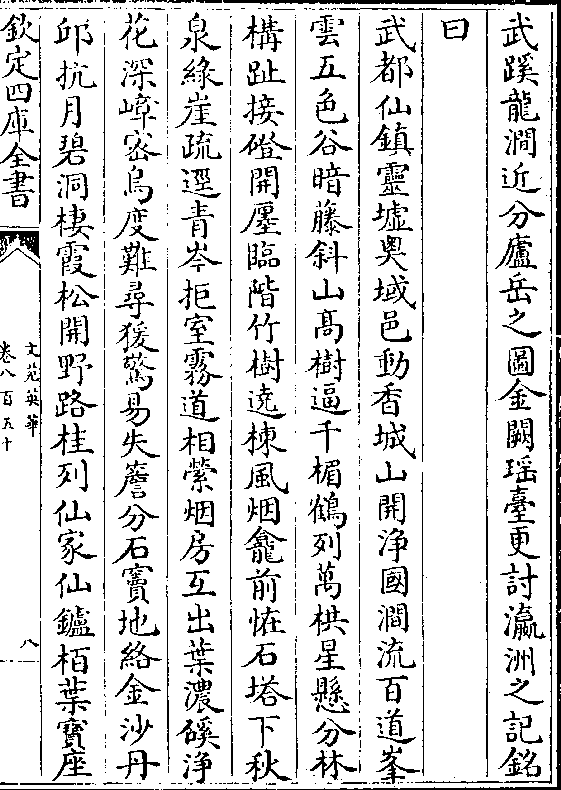 武蹊龍澗近分廬岳之圖金闕瑶臺更討瀛洲之記銘
曰
武都仙鎮靈墟奥域邑動香城山開浄國澗流百道峯
雲五色谷暗藤斜山髙樹逼千楣鶴列萬栱星懸分林
構趾接磴開㕓臨階竹樹遶棟風烟龕前恠石塔下秋
泉緑崖疏逕青岑拒室霧道相縈烟房互出葉濃磎浄
花深嶂宻鳥度難尋猨驚易失簷分石竇地絡金沙丹
邱抗月碧洞棲霞松開野路桂列仙家仙鑪栢葉寳座
欽定四庫全書
文苑英華
卷八百五十
八